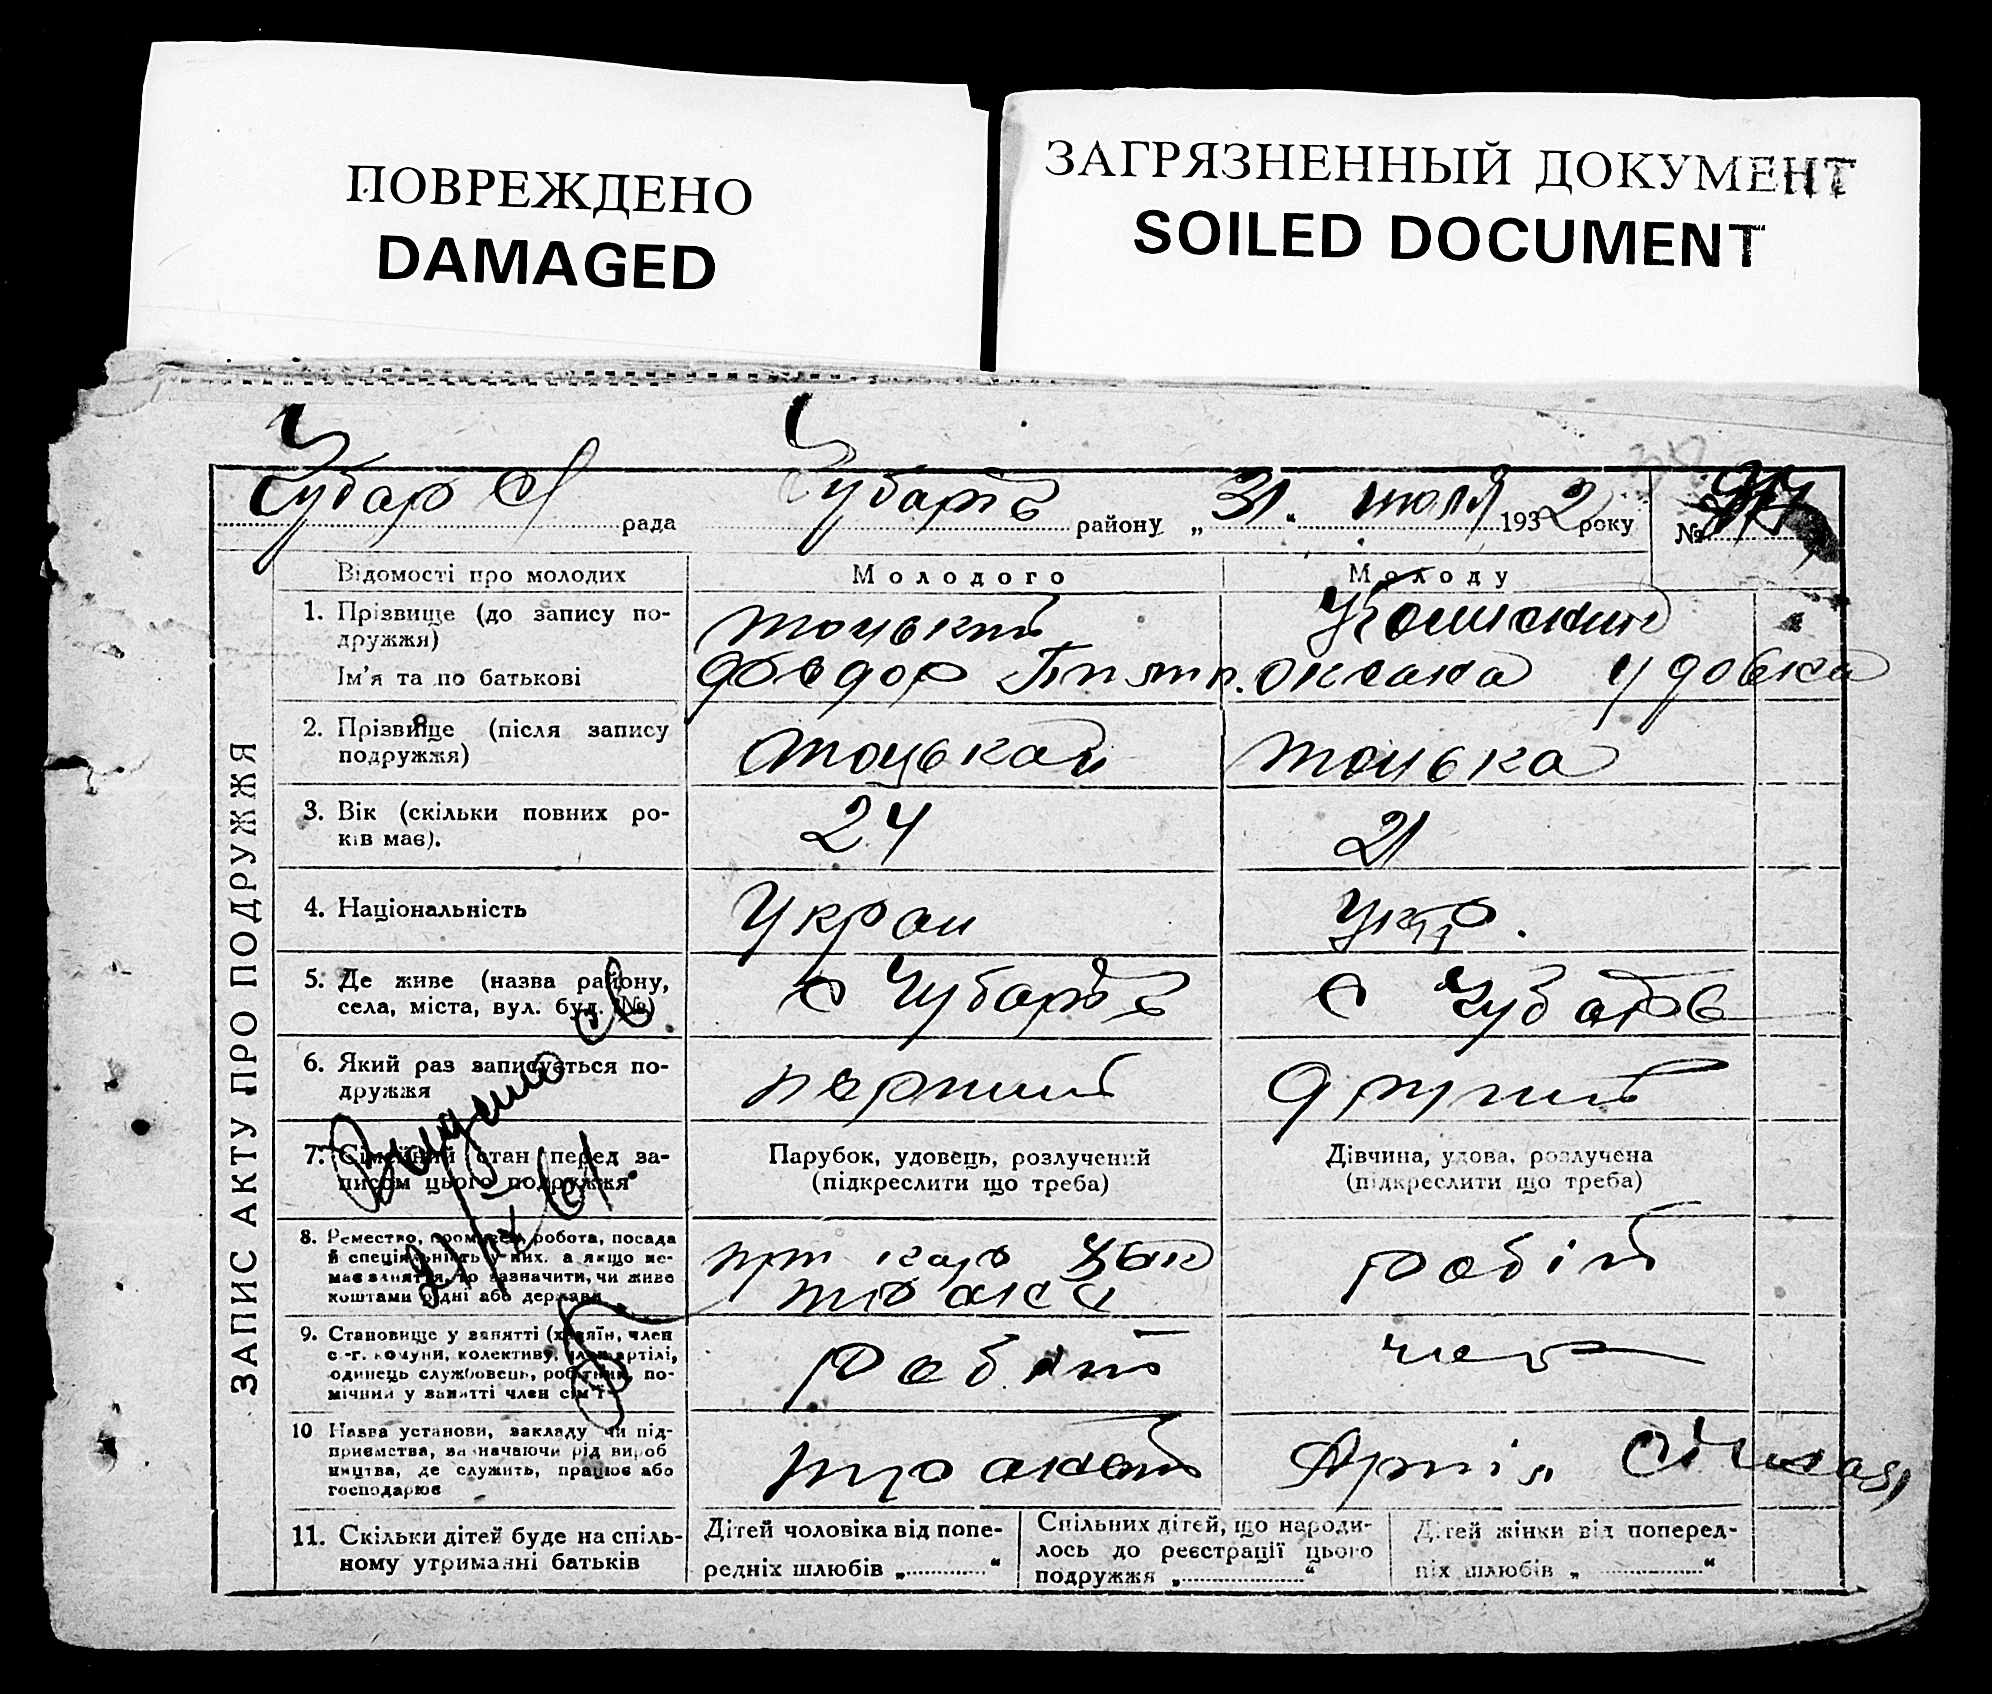 ПОВРЕЖДЕНО
DAMAGED
ЗАГРЯЗНЕННЫЙ ДОКУМЕНТ
SOILED DOCUMENT
Чубар рада Чубарів району „31“ июля 1932 року №
ЗАПИС АКТУ ПРО ПОДРУЖЖЯ
Відомості про молодих
Молодого
Молоду
1. Прізвище (до запису по-
дружжя)
Ім'я та по батькові
Тоцький
Федор
Оксана удовка
2. Прізвище (після запису
подружжя)
Тоцькай
Тоцька
3. Вік (скільки повних ро-
ків має).
24
21
4. Національність
Украи
Укр.
5. Де живе (назва району,
села, міста, вул. буд. №)
с Чубарів
с Чубарів
6. Який раз записується по-
дружжя
перший
другий
7. Сімейний стан перед за-
писом цього подружжя
Парубок, удовець, розлучений
(підкреслити що треба)
Дівчина, удова, розлучена
(підкреслити що треба)
8. Ремество, промисел, робота, посада
й спеціяльність у них. а якщо не-
має заняття, то зазначити, чи живе
коштами рідні або держави
робій
9. Становище у занятті (хазяїн, член
с.-г. комуни, колективу, член артілі,
одинець службовець, робітник, по-
мічний у занятті член сім'ї
робіт
10 Назва установи, закладу чи під-
приємства, зазначаючи рід вироб
ництва, де служить, працює або
господарює
Артіл
11. Скільки дітей буде на спіль-
ному утриманні батьків
Дітей чоловіка від попе-
редніх шлюбів „ “
Спільних дітей, що народи-
лось до реєстрації цього
подружжя „ “
Дітей жінки від поперед-
ніх шлюбів „ “
Видано